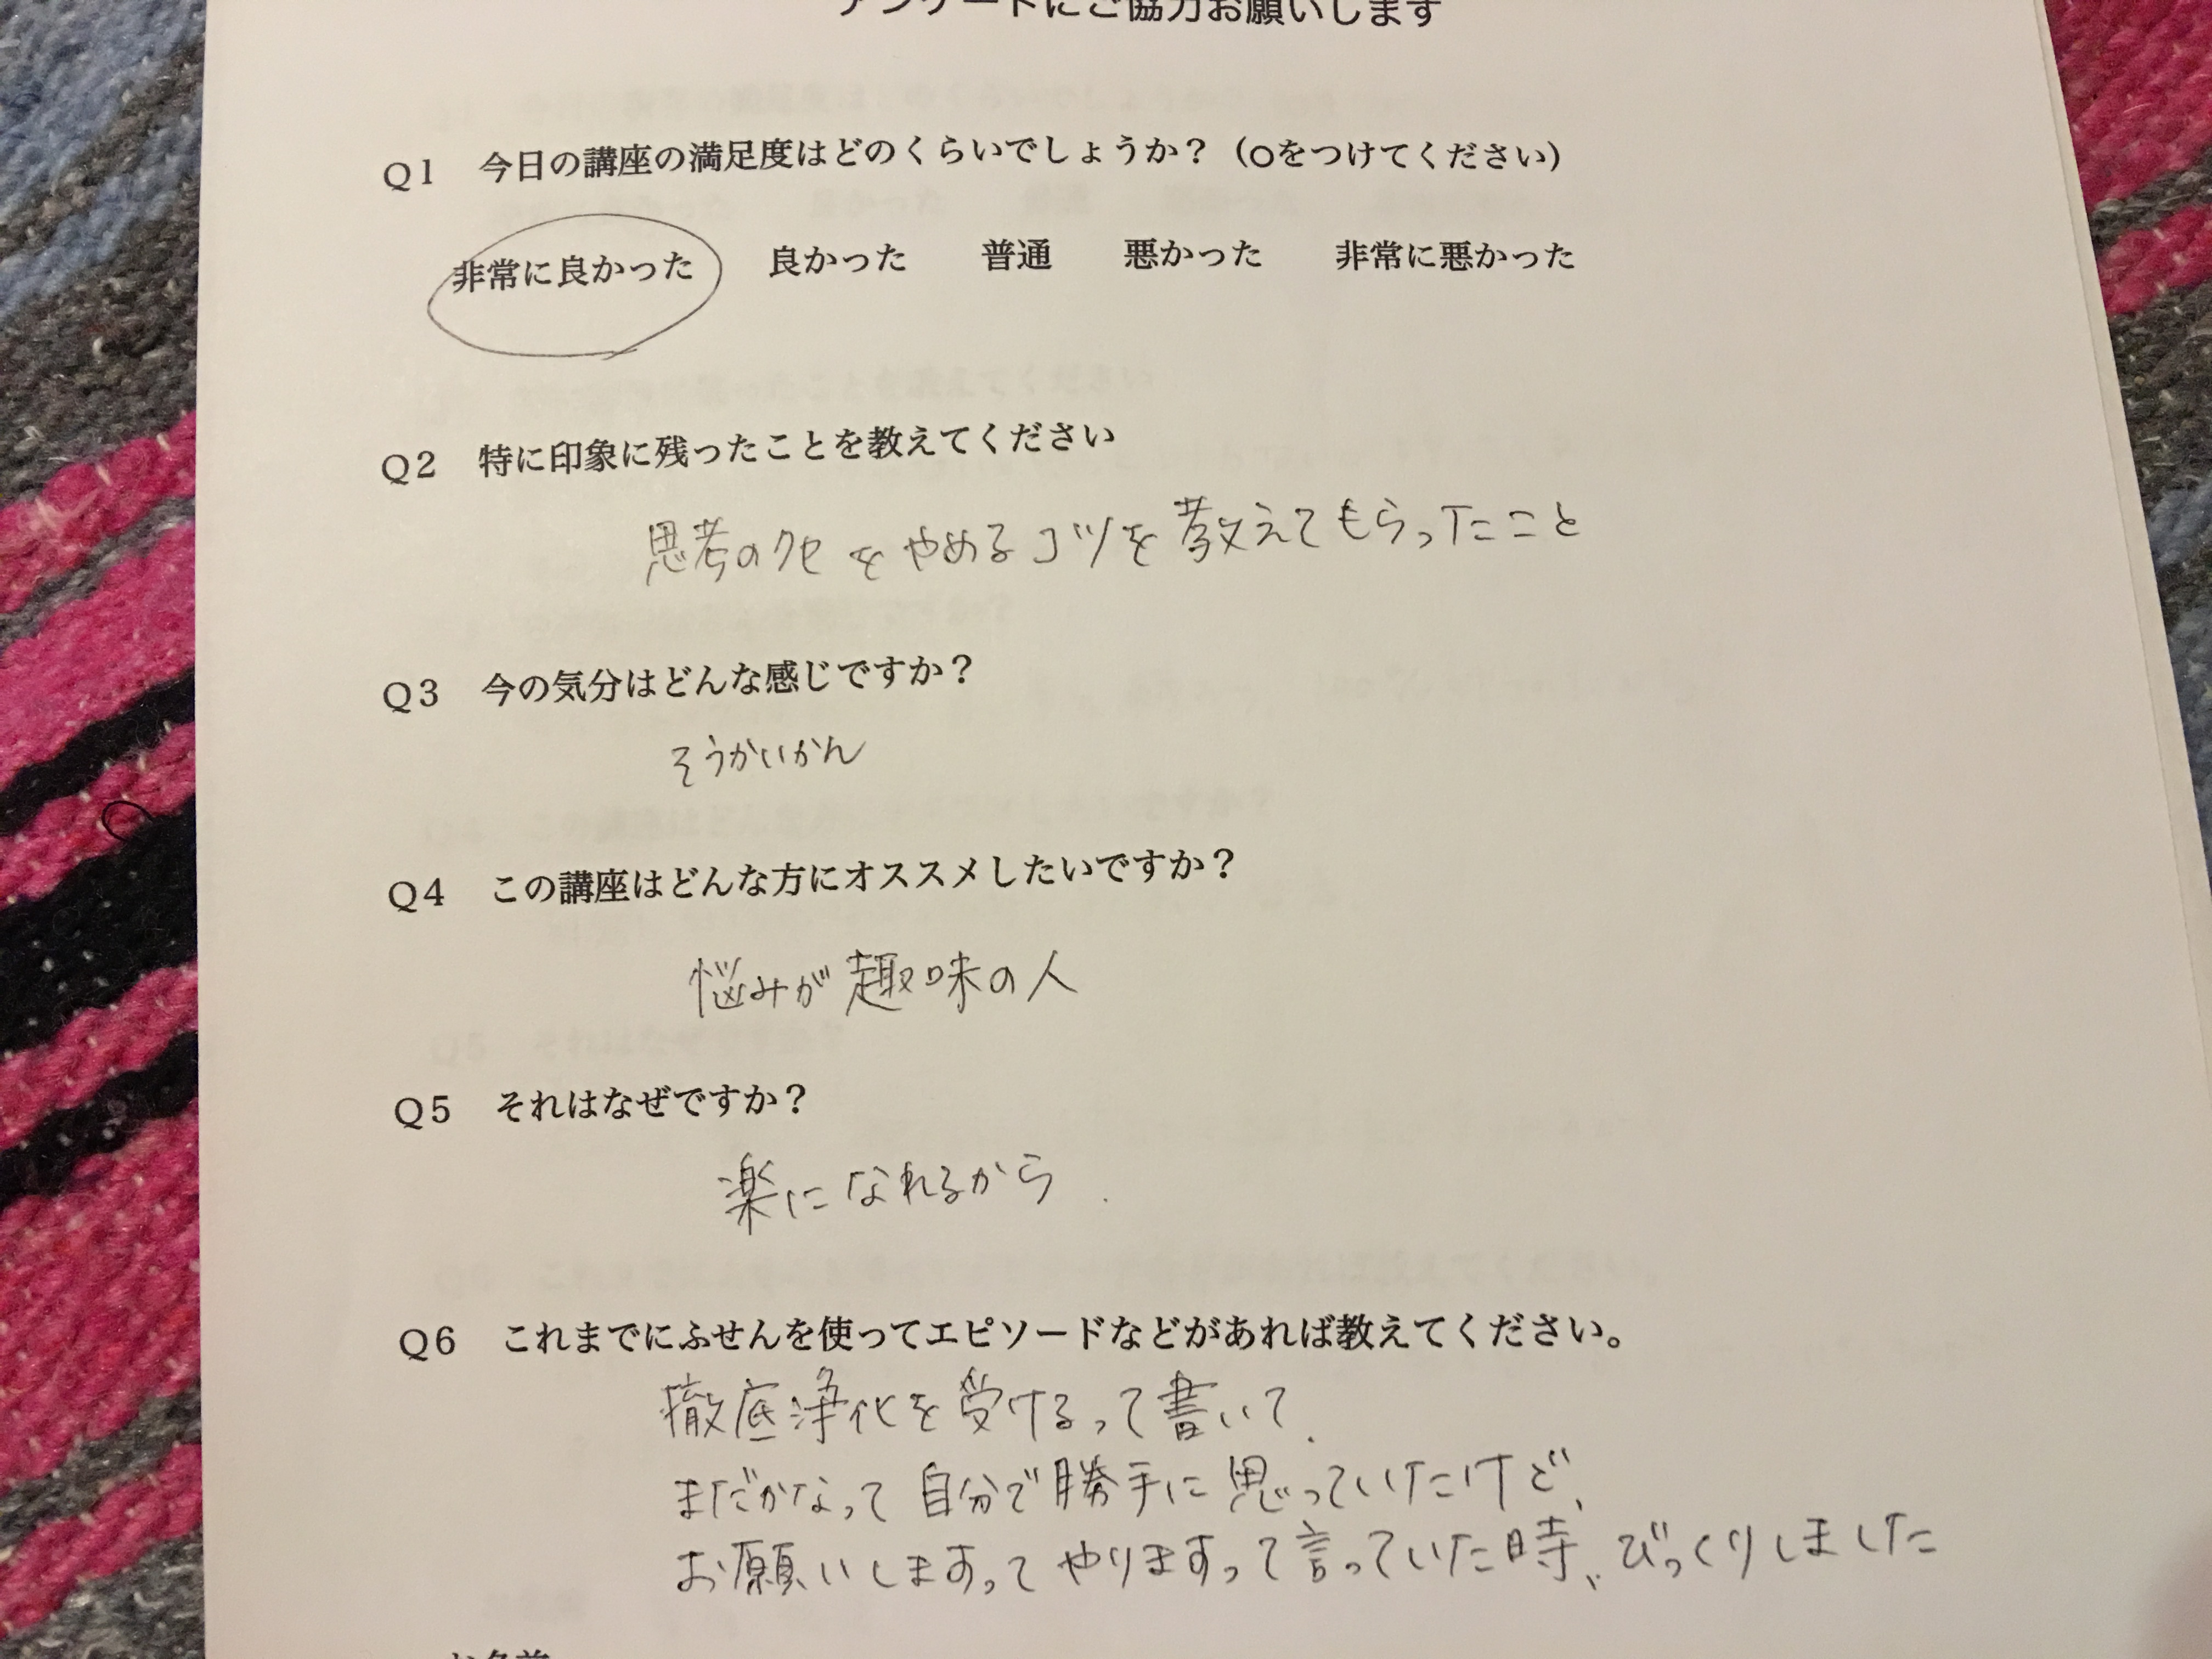 アンケートにご協力お願いします
Q1 今日の講座の満足度はどのくらいでしょうか？（○をつけてください）
非常に良かった 良かった 普通 悪かった 非常に悪かった
Q2 特に印象に残ったことを教えてください
思考のクセをやめるコツを教えてもらったこと
Q3 今の気分はどんな感じですか？
そうかいかん
Q4 この講座はどんな方にオススメしたいですか？
悩みが趣味の人
Q5 それはなぜですか？
楽になれるから.
Q6 これまでにふせんを使ってエピソードなどがあれば教えてください。
徹底浄化を受けるって書いて、
まだかなって自分で勝手に思っていたけど、
お願いしますってやりますって言っていた時、びっくりしました
お名前